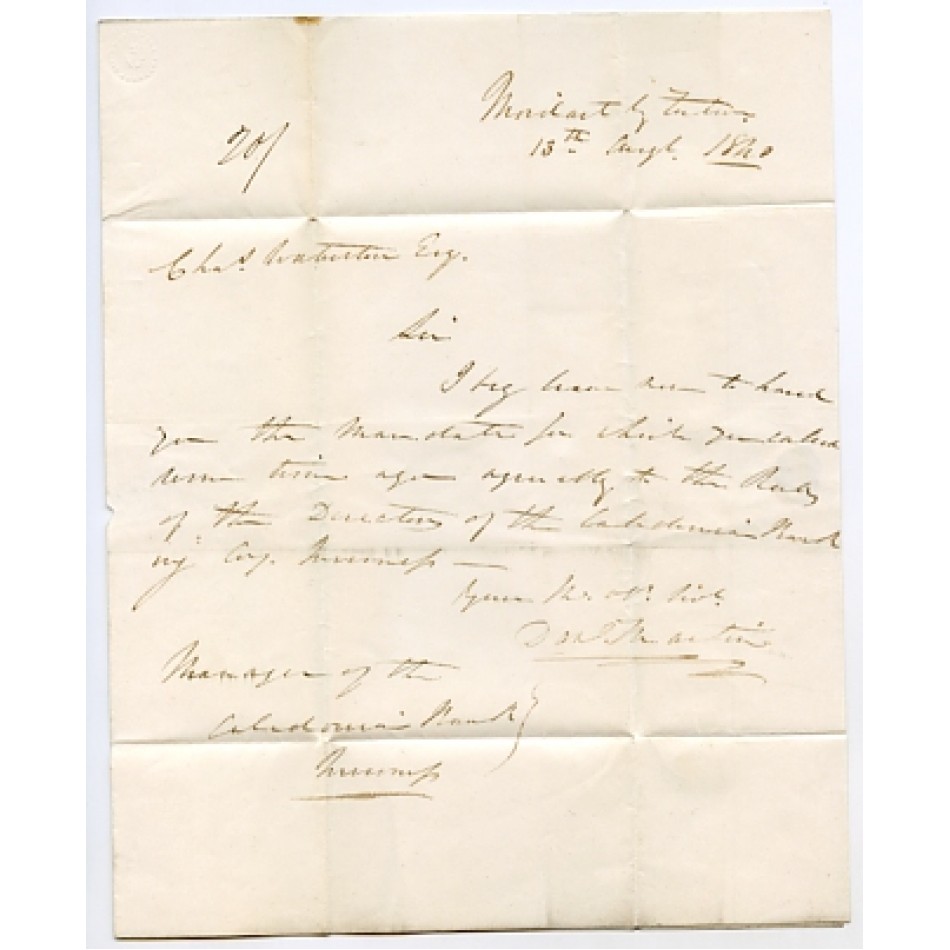 Moidart by
13th Augt. 1840
20/
Chas. Waterston Esq.
Sir
I beg leave now to hand
you the Mandate for which you asked
some time ago agreeably to the Rules
of the Directors of the Caledonian Bank
ng Coy. Inverness —
Your Mo. Ob. Svt.
Martin
Manager of the
Caledonian Bank
Inverness